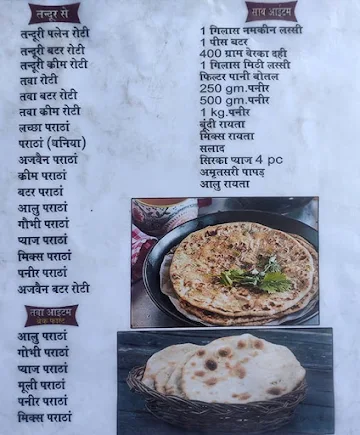 तन्दूर से
तन्दूरी प्लेन रोटी
तन्दूरी बटर रोटी
तन्दूरी कीम रोटी
तवा रोटी
तवा बटर रोटी
तवा कीम रोटी
लच्छा पराठां
पराठां (धनिया)
अजवैन पराठां
कीम पराठां
बटर पराठां
आलु पराठां
गौभी पराठां
प्याज पराठां
मिक्स पराठां
पनीर पराठां
अजवैन बटर रोटी
तवा आइटम
ब्रेकफास्ट
आलु पराठां
गोभी पराठां
प्याज पराठां
मूली पराठां
पनीर पराठां
मिक्स पराठां
साब आइटम
1 गिलास नमकीन लस्सी
1 पीस बटर
400 ग्राम वेरका दही
1 गिलास मिठी लस्सी
फिल्टर पानी बोतल
250 gm.पनीर
500 gm.पनीर
1 kg.पनीर
बूंदी रायता
मिक्स रायता
सलाद
सिरका प्याज 4 pc
अमृतसरी पापड़
आलु रायता